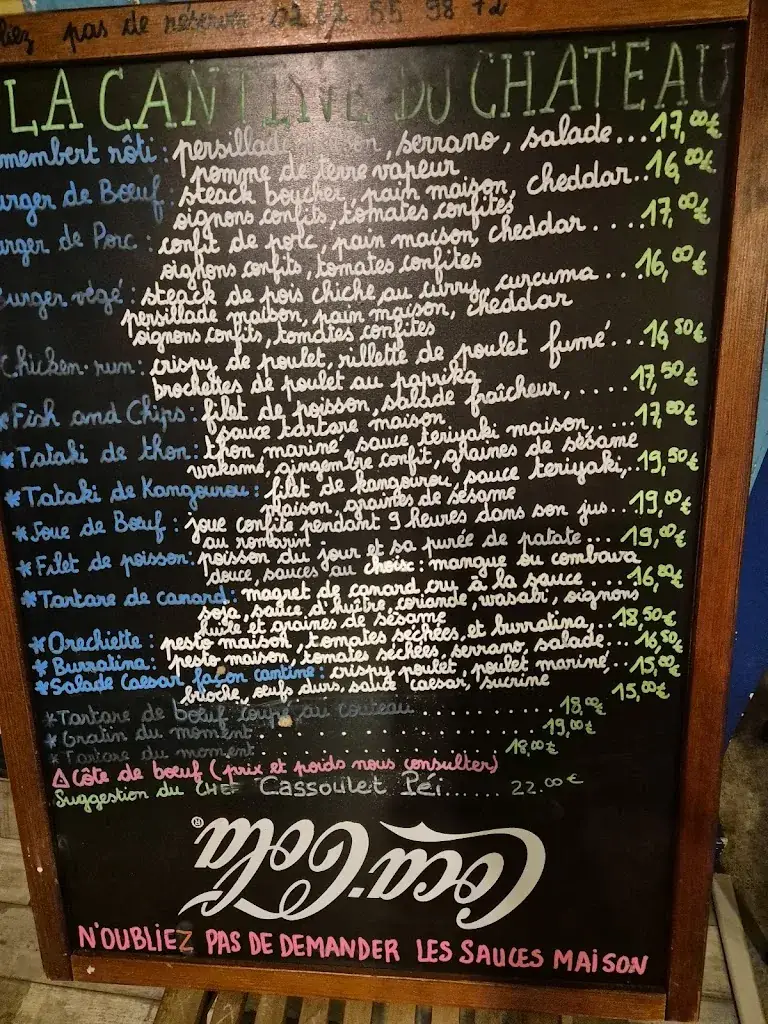 liez pas de réserver 02 62 55 98 72
LA CANTINE DU CHATEAU
membert rôti : persillade maison, serrano, salade... 17,00€
pomme de terre vapeur
urger de Bœuf : steack boucher, pain maison, cheddar.. 16,00€
oignons confits, tomates confites
urger de Porc : confit de porc, pain maison, cheddar .... 17,00€
oignons confits, tomates confites
Burger végé : steack de pois chiche au curry, curcuma... 16,00€
persillade maison, pain maison, cheddar
oignons confits, tomates confites
Chicken run : crispy de poulet, rillette de poulet fumé... 16,50€
brochettes de poulet au paprika
*Fish and Chips : filet de poisson, salade fraîcheur, ..... 17,50€
sauce tartare maison
*Tataki de thon : thon mariné, sauce teriyaki maison, .... 17,00€
wakamé, gingembre confit, graines de sésame
*Tataki de Kangourou : filet de kangourou, sauce teriyaki,.. 19,50€
maison, graines de sésame
*Joue de Bœuf : joue confite pendant 9 heures dans son jus.. 19,00€
au romarin
*Filet de poisson : poisson du jour et sa purée de patate... 19,00€
douce, sauces au choix : mangue ou combava
*Tartare de canard : magret de canard cru à la sauce .... 16,00€
soja, sauce d'huître, coriande, wasabi, oignons
huile et graines de sésame
*Orechiette : pesto maison, tomates séchées, et burratina,.. 18,50€
*Burratina : pesto maison, tomates séchées, serrano, salade... 16,50€
*Salade Caesar façon cantine : crispy poulet, poulet mariné,.. 15,00€
brioche, œufs durs, sauce caesar, sucrine 15,00€
*Tartare de bœuf coupé au couteau ............ 18,00€
*Gratin du moment ............ 19,00€
*Tartare du moment ............ 18,00€
△ Côte de boeuf (prix et poids nous consulter)
Suggestion du CHEF Cassoulet Péi...... 22.00€
Coca-Cola®
N'OUBLIEZ PAS DE DEMANDER LES SAUCES MAISON